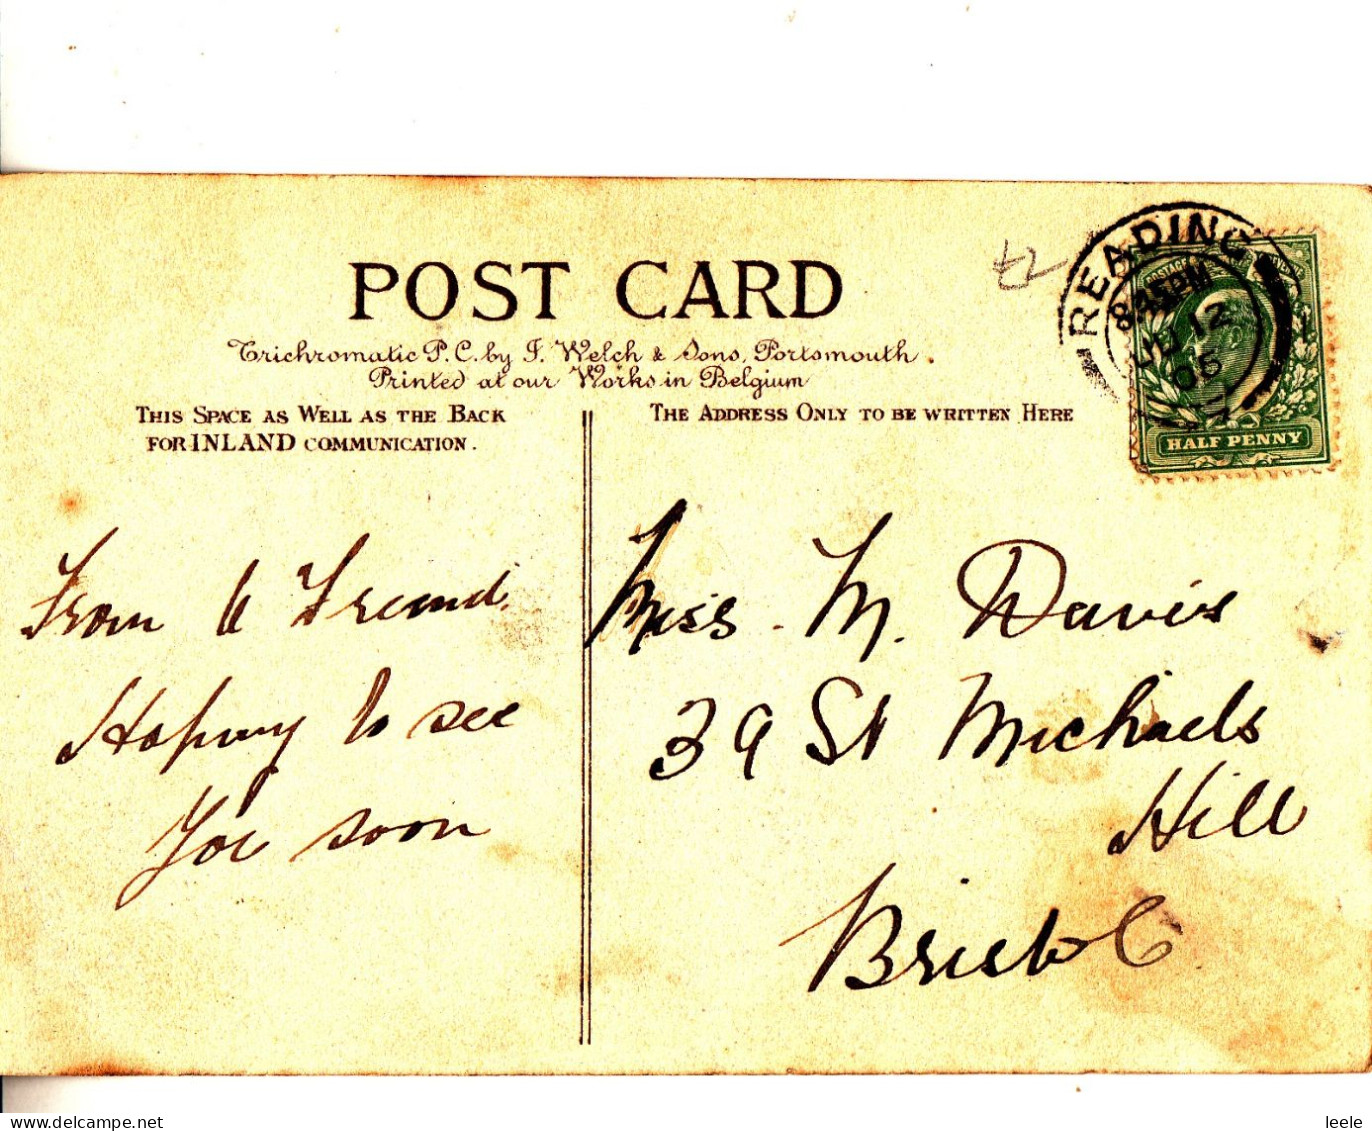 £2
READING
8.45PM
JU 12
05
HALF PENNY
POST CARD
Trichromatic P.C. by J. Welch & Sons, Portsmouth.
Printed at our Works in Belgium
THIS SPACE AS WELL AS THE BACK
FOR INLAND COMMUNICATION.
THE ADDRESS ONLY TO BE WRITTEN HERE
From A Freind.
Hoping to see
You soon
Miss. M. Davis
39 St Michaels
Hill
Bristol
www.delcampe.net
leele